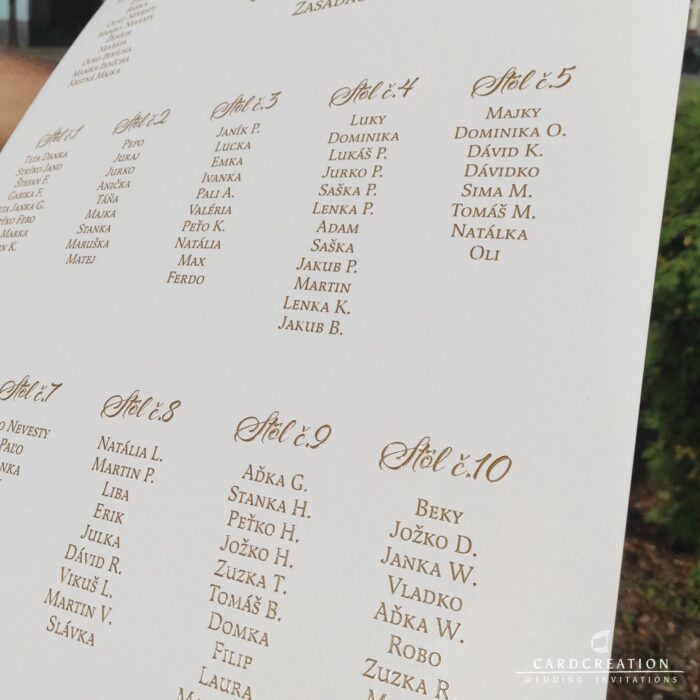 Zasadac
Otko Nevesty
Mamka Nevesty
Ženích
Nevesta
Otko Ženícha
Mamka Ženícha
Krstná Majka
Stôl č.1
Teta Danka
Strýko Jano
Štefan F.
Gabika F.
Teta Janka G.
Fero
Marka
K.
Stôl č.2
Pepo
Juraj
Jurko
Anička
Táňa
Majka
Stanka
Maruška
Matej
Stôl č.3
Janík P.
Lucka
Emka
Ivanka
Pali A.
Valéria
Peťo K.
Natália
Max
Ferdo
Stôl č.4
Luky
Dominika
Lukáš P.
Jurko P.
Saška P.
Lenka P.
Adam
Saška
Jakub P.
Martin
Lenka K.
Jakub B.
Stôl č.5
Majky
Dominika O.
Dávid K.
Dávidko
Sima M.
Tomáš M.
Natálka
Oli
Stôl č.7
Nevesty
Paľo
Stôl č.8
Natália L.
Martin P.
Liba
Erik
Julka
Dávid R.
Vikuš L.
Martin V.
Slávka
Stôl č.9
Aďka G.
Stanka H.
Peťko H.
Jožko H.
Zuzka T.
Tomáš B.
Domka
Filip
Laura
Stôl č.10
Beky
Jožko D.
Janka W.
Vladko
Aďka W.
Robo
Zuzka R
CARDCREATION
WEDDING INVITATIONS